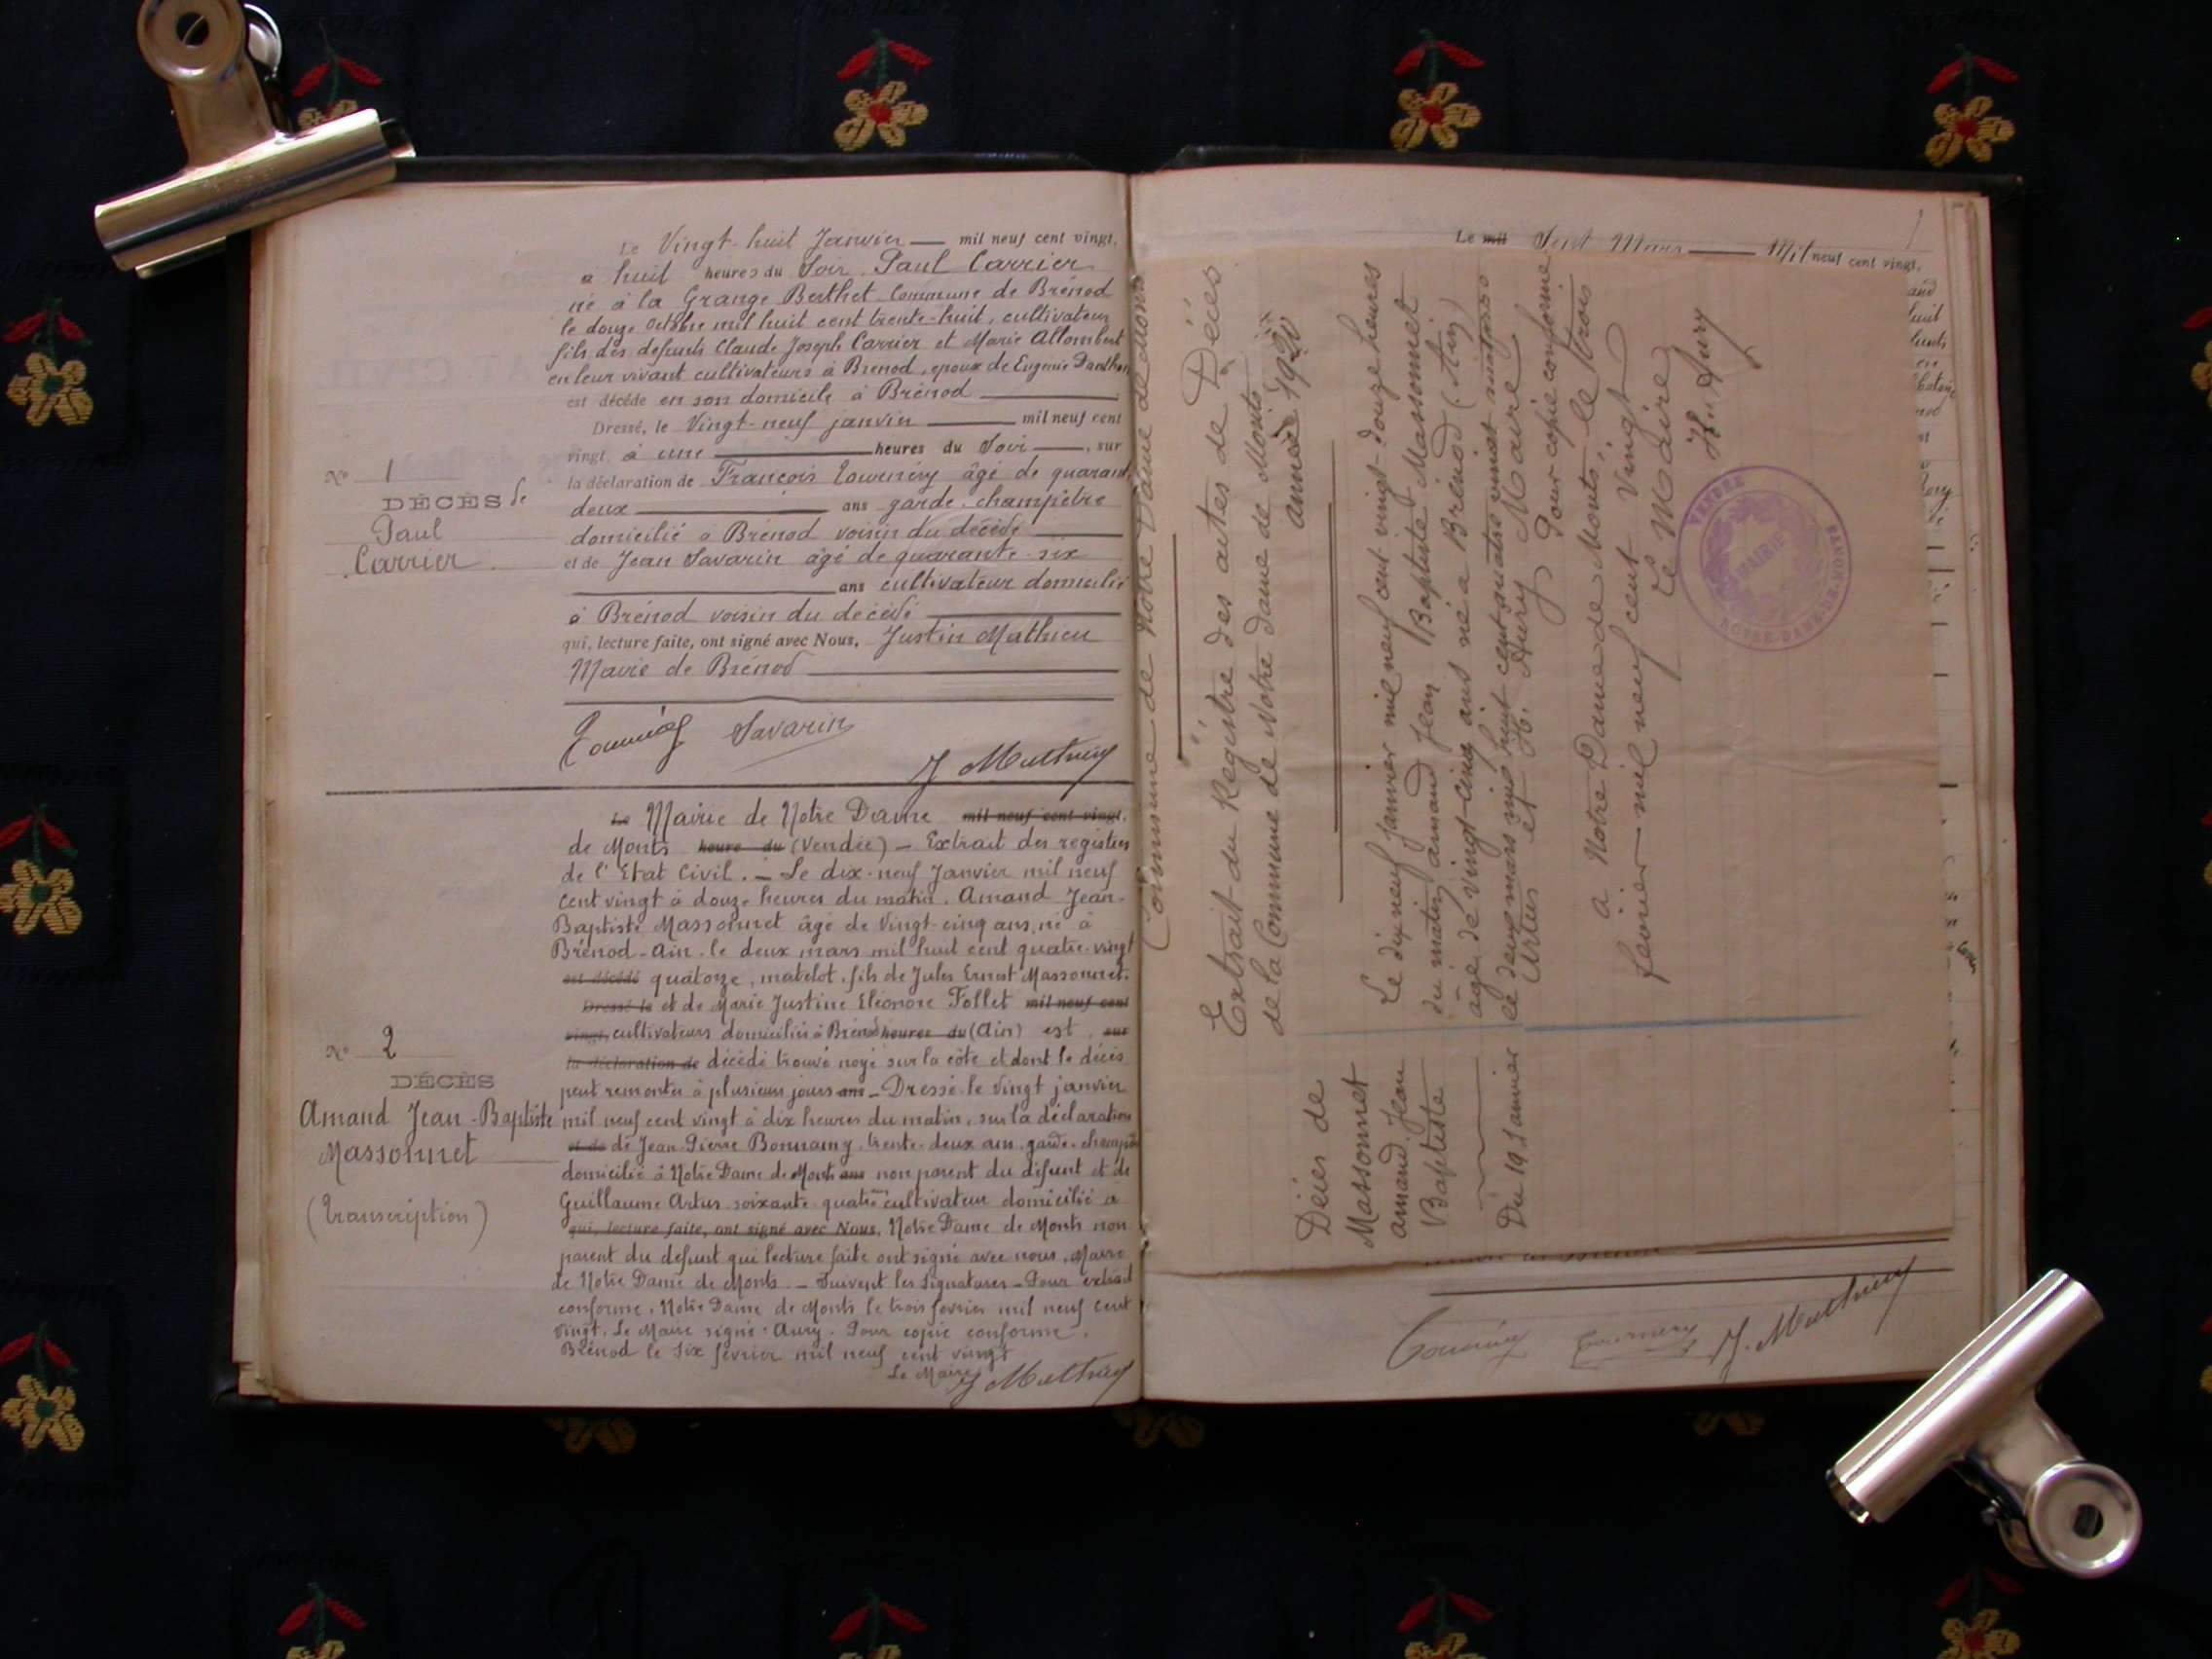 Le Vingt-huit Janvier — mil neuf cent vingt,
à huit heures du Soir, Paul Carrier
né à la Grange Berthet Commune de Brénod
le douze Octobre mil huit cent trente-huit, cultivateur
fils des defunts Claude Joseph Carrier et Marie Allombert
en leur vivant cultivateurs à Brénod, epoux de Eugénie
est décédé en son domicile à Brénod
Dressé, le Vingt-neuf janvier — mil neuf cent
vingt, à une — heures du Soir —, sur
la déclaration de François âgé de quarante
deux — ans garde-champêtre
domicilié à Brénod voisin du décédé
et de Jean Savarin âgé de quarante-six
ans cultivateur domicilié
à Brénod voisin du décédé
qui, lecture faite, ont signé avec Nous, Justin Mathieu
Maire de Brénod
Nº 1
DÉCÈS de
Paul
Carrier
Savarin
J Mathieu
Le Mairie de Notre Dame mil neuf cent vingt,
de Monts heure du (Vendée) — Extrait des registres
de l'Etat Civil. — Le dix-neuf Janvier mil neuf
cent vingt à douze heures du matin. Amand Jean-
Baptiste Massonnet âgé de Vingt-cinq ans, né à
Brénod-Ain-le deux mars mil huit cent quatre-vingt
est décédé quatorze, matelot, fils de Jules Ernest Massonnet.
Dressé le et de Marie Justine Eléonore Follet mil neuf cent
vingt, cultivateurs domiciliés à Brénod heures du (Ain) est, sur
la déclaration de décédé trouvé noyé sur la côte et dont le décès
peut remonter à plusieurs jours ans — Dressé le Vingt janvier
mil neuf cent vingt à dix heures du matin, sur la déclaration
et de de Jean-Pierre Bonnamy, trente-deux ans, garde-champêtre
domicilié à Notre Dame de Monts ans non parent du défunt et de
Guillaume Artus soixante-quatre ans cultivateur domicilié à
qui, lecture faite, ont signé avec Nous, Notre Dame de Monts non
parent du defunt qui lecture faite ont signé avec nous, Maire
de Notre Dame de Monts — Suivent les signatures — Pour extrait
conforme, Notre Dame de Monts le trois fevrier mil neuf cent
vingt. Le Maire signé: Aury. Pour copie conforme.
Brénod le Six fevrier mil neuf cent vingt
Le Maire
J Mathieu
Nº 2
DÉCÈS
Amand Jean-Baptiste
Massonnet
(Transcription)
Le mil Sept Mars — Mil neuf cent vingt,
Commune de Notre Dame de Monts
Extrait du Registre des actes de Décès
de la Commune de Notre Dame de Monts
année 1920
Décès de
Massonnet
amand Jean
Baptiste
Du 19 Janvier
Le dix neuf Janvier mil neuf cent vingt-douze heures
du matin amand Jean Baptiste Massonnet
âgé de vingt-cinq ans né à Brénod (Ain)
le deux mars mil huit cent quatre vingt
Artus et H. Aury Maire
Pour copie conforme
a Notre Dame de Monts, le trois
fevrier mil neuf cent vingt
Le Maire
Hri Aury
VENDÉE
MAIRIE
NOTRE-DAME-DE-MONTS
J. Mathieu